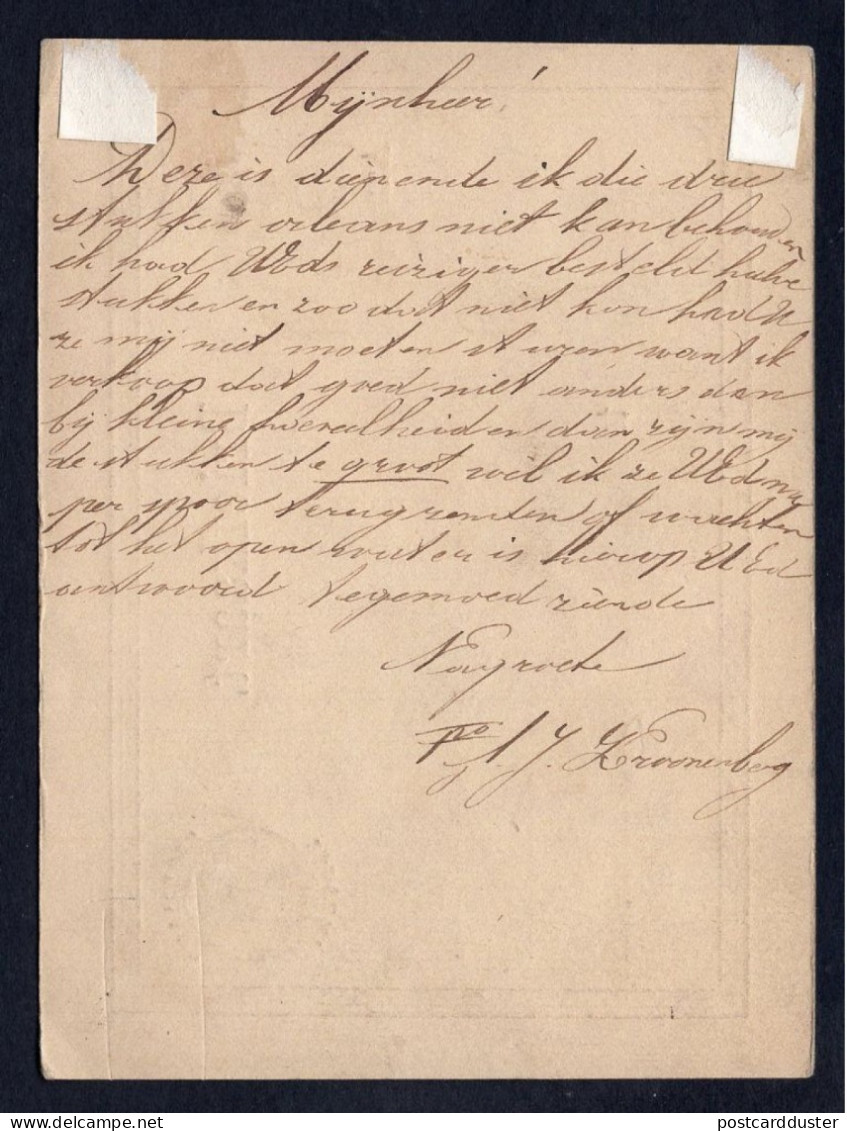 Mijnheer!
Deze is dienende ik die drie
stukken orleans niet kan behouden
ik had UEds reiziger besteld halve
stukken en zoo dat niet kon had U
ze mij niet moeten sturen want ik
verkoop dat goed niet anders dan
bij kleine hoeveelheid en dan zijn mij
de stukken te groot wil ik ze UEd nu
per spoor terug zenden of wachten
tot het open water is hierop UEd
antwoord tegemoed ziende
Na groete
J. Kroonenberg
postcardduster